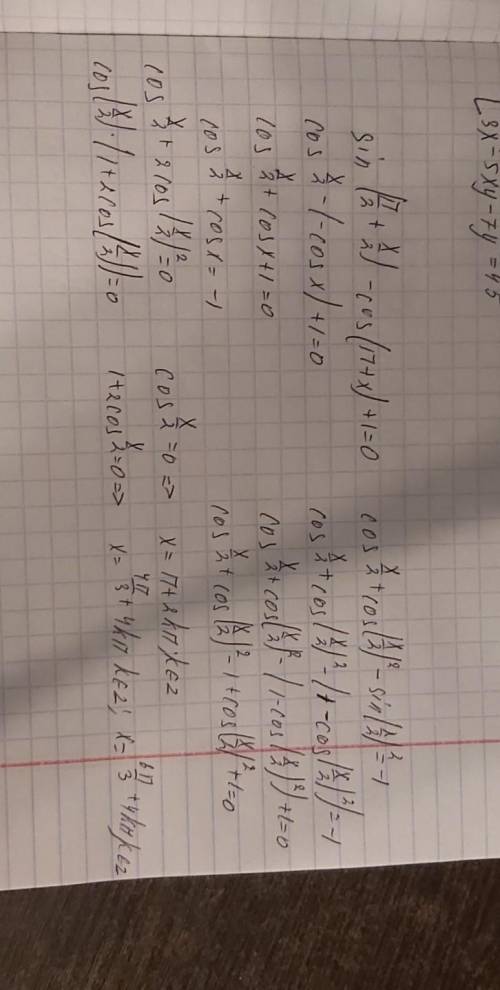 [3x²-5xy-7y=45
sin(π/2 + x/2) - cos(π+x) + 1 = 0
cos x/2 - (-cos x) + 1 = 0
cos x/2 + cos x + 1 = 0
cos x/2 + cos x = -1
cos x/2 + cos(x/2)² - sin(x/2)² = -1
cos x/2 + cos(x/2)² - (1 - cos(x/2)²) = -1
cos x/2 + cos(x/2)² - (1 - cos(x/2)²) + 1 = 0
cos x/2 + cos(x/2)² - 1 + cos(x/2)² + 1 = 0
cos x/2 + 2cos(x/2)² = 0
cos(x/2) · (1 + 2cos(x/2)) = 0
cos x/2 = 0 => x = π + 2kπ, k∈z
1 + 2cos x/2 = 0 => x = 4π/3 + 4kπ k∈z; x = 6π/3 + 4kπ, k∈z